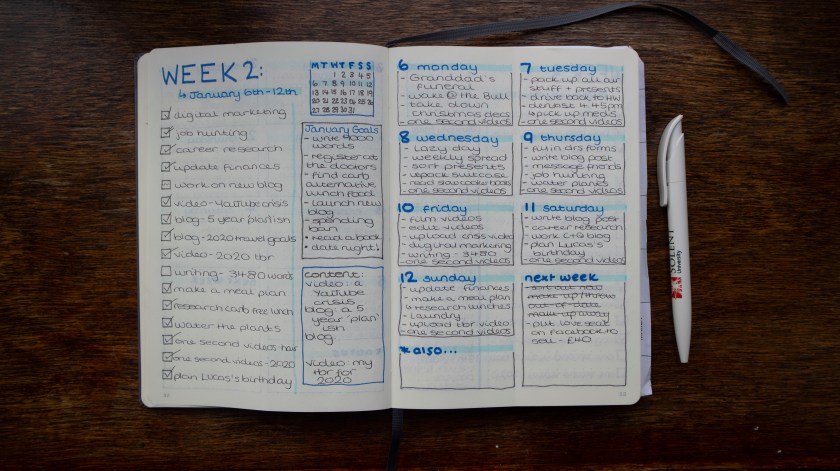 WEEK 2:
January 6th-12th
digital marketing
job hunting
career research
update finances
work on new blog
video - YouTube crisis
blog - 5 year plan ish
blog - 2020 travel goals
video - 2020 tbr
writing - 3480 words
make a meal plan
research carb free lunch
water the plants
one second videos - hair
one second videos - 2020
plan Lucas's birthday
M T W T F S S
1 2 3 4 5
6 7 8 9 10 11 12
13 14 15 16 17 18 19
20 21 22 23 24 25 26
27 28 29 30 31
January Goals
- write 4000
words
- register at
the doctors
- find carb
alternative
lunch food
- launch new
blog
- spending
ban
• read a book
• date night!
content:
video: a
YouTube
crisis
blog: a 5
year 'plan'
ish
blog
video: my
tbr for
2020
6 monday
- Granddad's
funeral
- wake @ the Bull
- take down
christmas decs
- one second videos
7 tuesday
- pack up all air
stuff + presents
- drive back to HW
- dentist 4:45pm
- pick up meds
- one second videos
8 wednesday
- lazy day
- weekly spread
- sort presents
- unpack suitcase
- read slow cooker book
- one second videos
9 thursday
- fill in drs forms
- write blog post
- message friends
- job hunting
- water plants
- one second videos
10 friday
- film videos
- edit videos
- upload crisis video
- digital marketing
- writing - 3480
- one second videos
11 saturday
- write blog post
- career research
- work on blog
- plan Lucas's
birthday
- one second videos
12 sunday
- update finances
- make a meal plan
+ research lunches
- laundry
- upload tbr video
- one second videos
next week
- sort out new
make up/throw
out of date
make up away
- put love seat
on facebook to
sell - £40
* also...
SOLENT
University